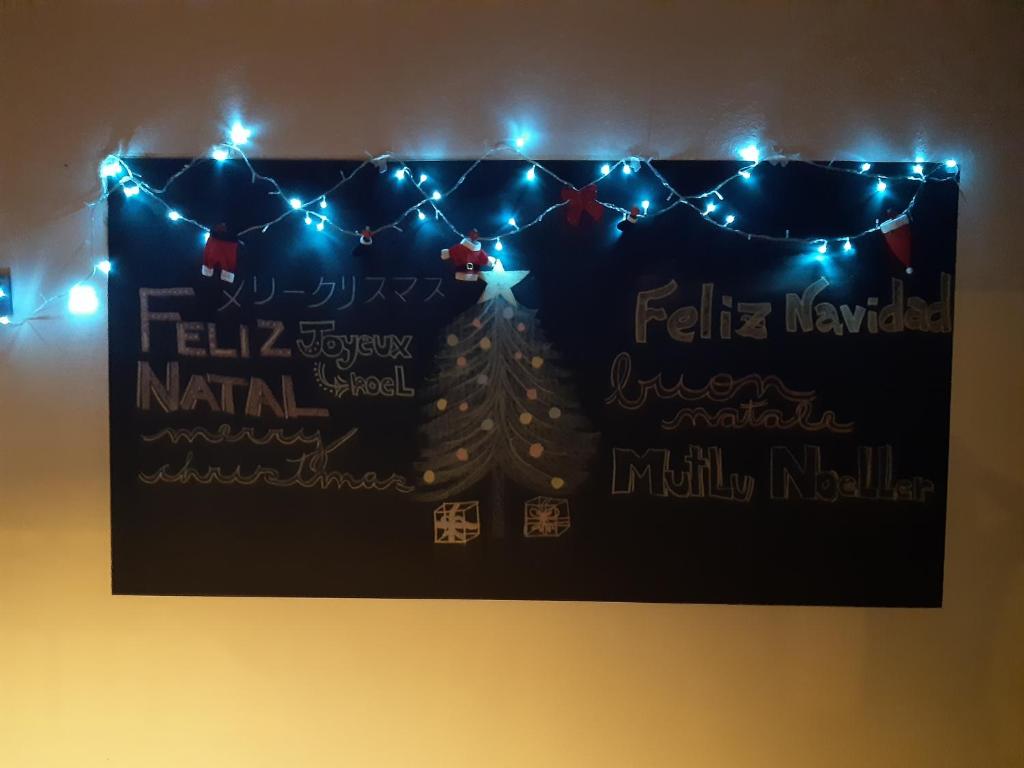 メリークリスマス
FELIZ
NATAL
Joyeux
NOEL
merry
christmas
Feliz Navidad
buon
natale
Mutlu Noeller